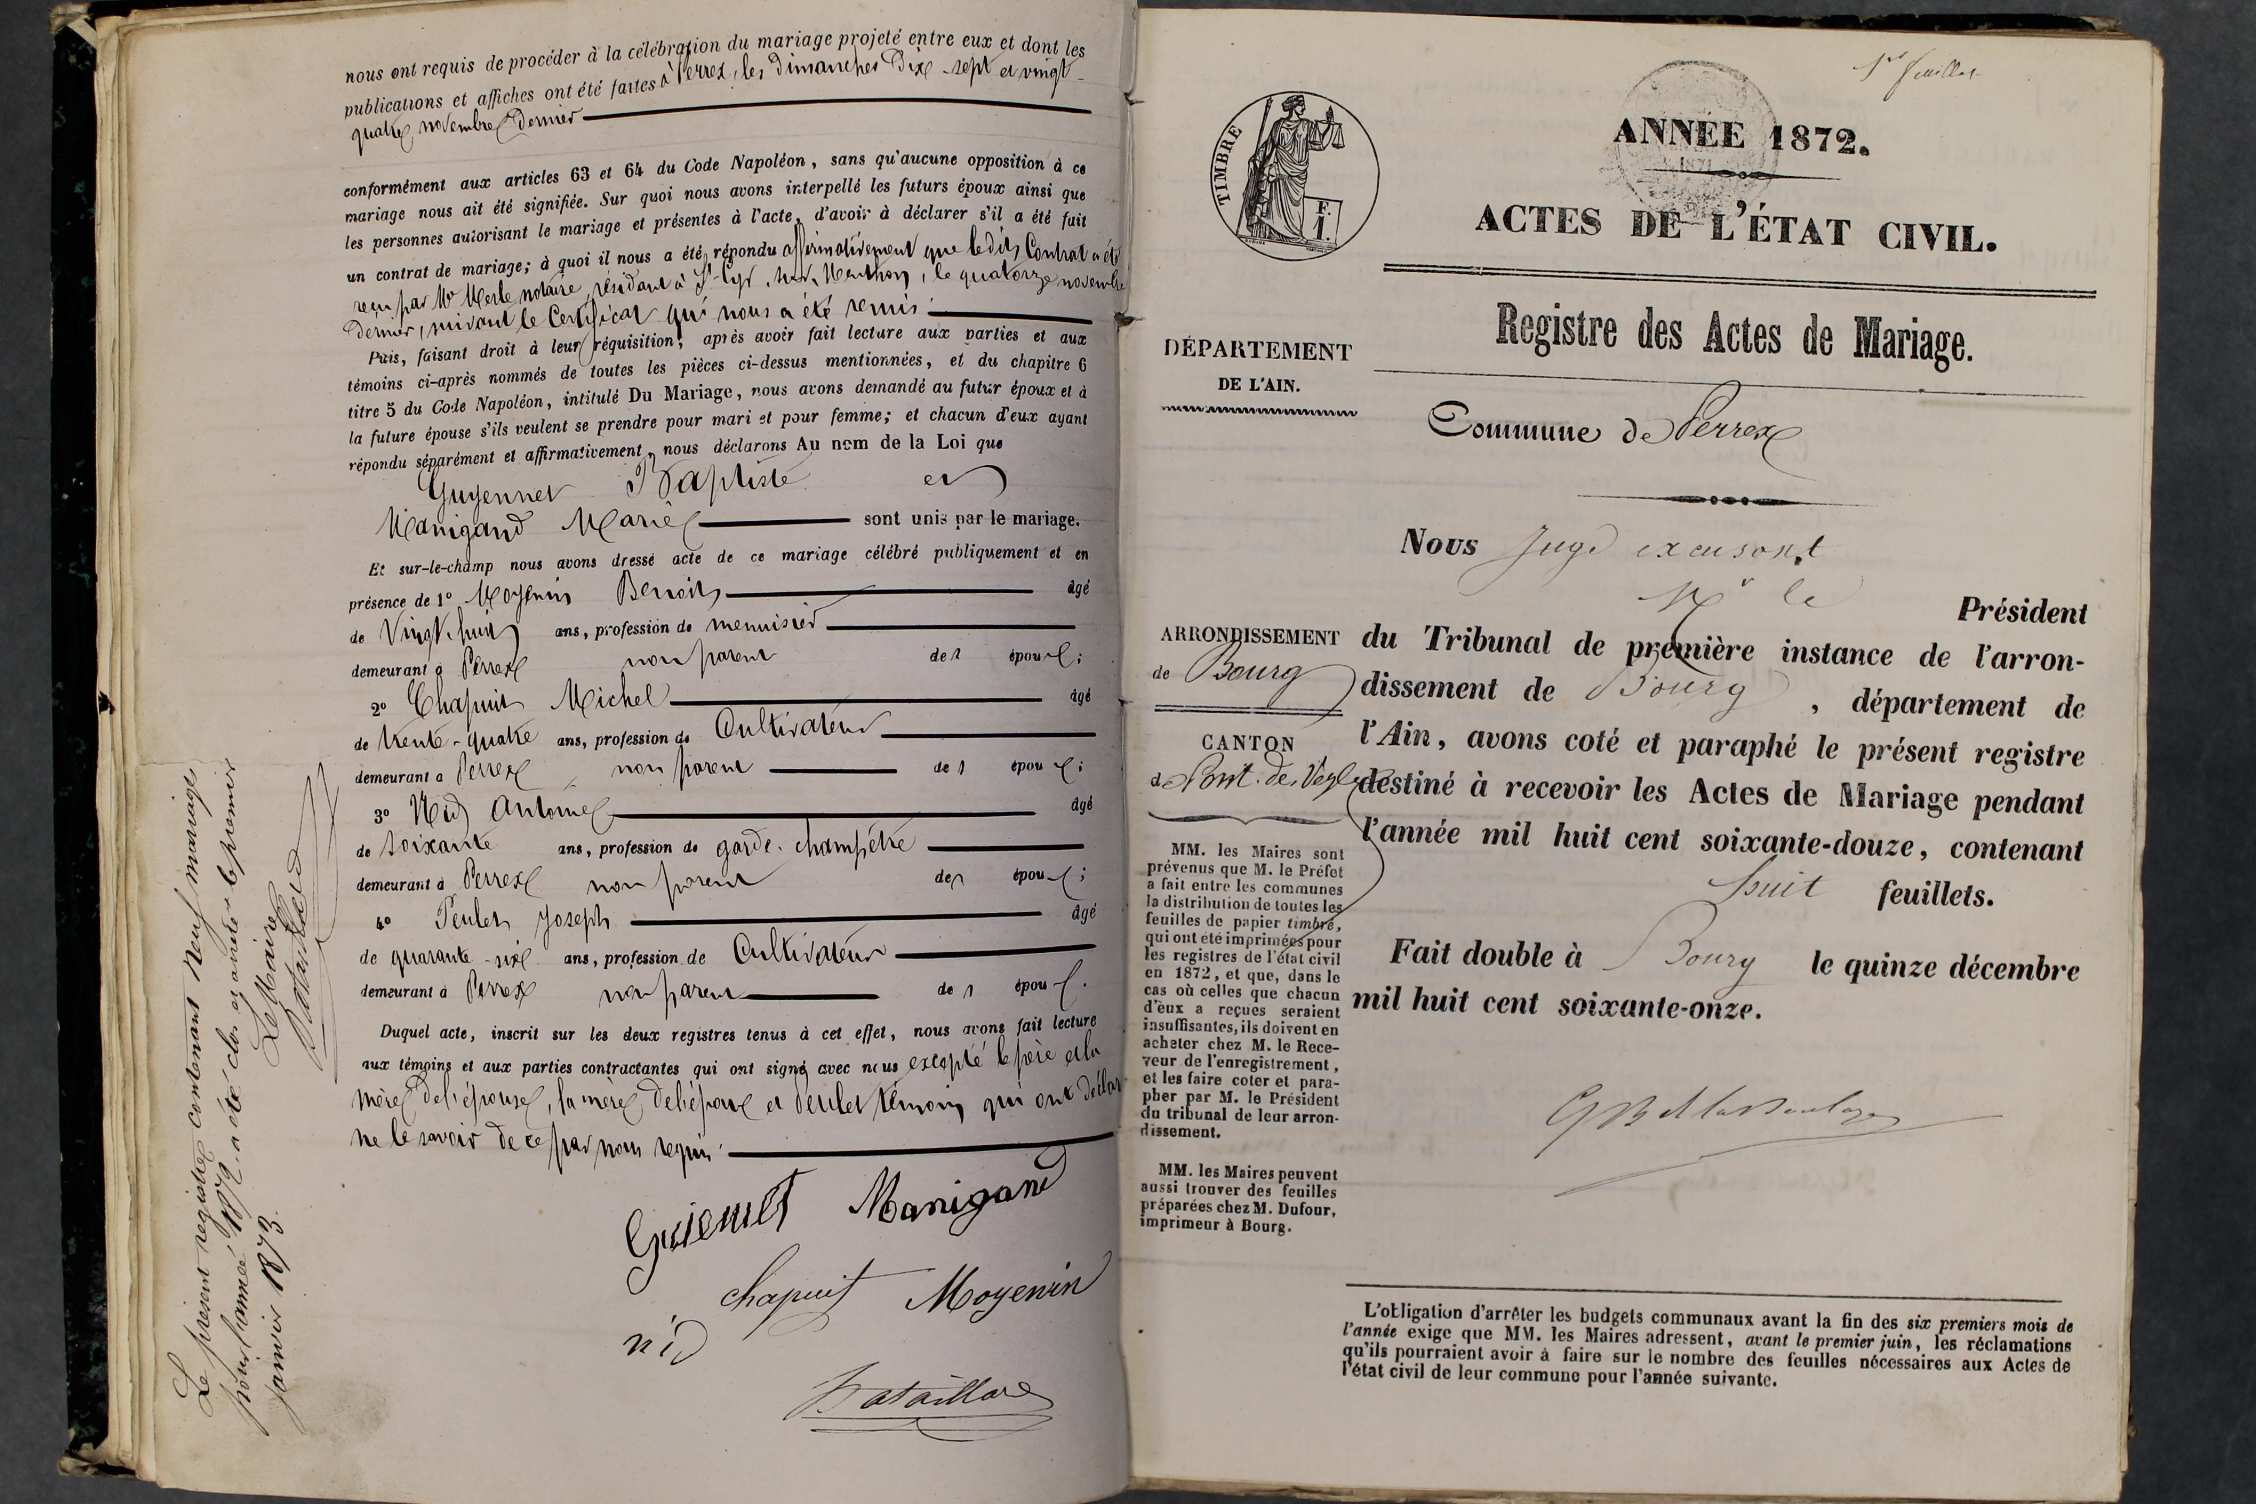 nous ont requis de procéder à la célébration du mariage projeté entre eux et dont les
publications et affiches ont été faites à Perrex, les Dimanches Dix-sept et vingt-
quatre novembre Dernier
conformément aux articles 63 et 64 du Code Napoléon, sans qu'aucune opposition à ce
mariage nous ait été signifiée. Sur quoi nous avons interpellé les futurs époux ainsi que
les personnes autorisant le mariage et présentes à l'acte, d'avoir à déclarer s'il a été fait
un contrat de mariage; à quoi il nous a été répondu affirmativement que ledit Contrat a été
reçu par Me Merle notaire, résidant à St Cyr, sur Menthon, le quatorze novembre
Dernier, suivant le Certificat qui nous a été remis
Puis, faisant droit à leur réquisition, après avoir fait lecture aux parties et aux
témoins ci-après nommés de toutes les pièces ci-dessus mentionnées, et du chapitre 6
titre 5 du Code Napoléon, intitulé Du Mariage, nous avons demandé au futur époux et à
la future épouse s'ils veulent se prendre pour mari et pour femme; et chacun d'eux ayant
répondu séparément et affirmativement, nous déclarons Au nom de la Loi que
Guyennet Baptiste et
Manigand Marie sont unis par le mariage.
Et sur-le-champ nous avons dressé acte de ce mariage célébré publiquement et en
présence de 1º Moyenin Benoit âgé
de Vingt-huit ans, profession de menuisier
demeurant à Perrex non parent des époux;
2º Chapuit Michel âgé
de trente-quatre ans, profession de Cultivateur
demeurant à Perrex, non parent des époux;
3º Nid Antoine âgé
de soixante ans, profession de garde-champêtre
demeurant à Perrex non parent des époux;
4º Peulet Joseph âgé
de quarante-six ans, profession de Cultivateur
demeurant à Perrex non parent des époux.
Duquel acte, inscrit sur les deux registres tenus à cet effet, nous avons fait lecture
aux témoins et aux parties contractantes qui ont signé avec nous excepté le père et la
mère de l'épouse, la mère de l'époux et Peulet témoin qui ont déclaré
ne le savoir de ce par nous requis
Guiennet Manigand
chapuit Moyenin
nid
Bataillard
Le présent registre contenant neuf mariages
pour l'année 1872 a été clos et arrêté le premier
janvier 1873.
Le Maire
Bataillard
1er feuillet
TIMBRE
F.
1.
ANNÉE 1872.
1871
ACTES DE L'ÉTAT CIVIL.
Registre des Actes de Mariage.
DÉPARTEMENT
DE L'AIN.
Commune de Perrex
Nous Juge excusant
Mr le Président
ARRONDISSEMENT
de Bourg
CANTON
de Pont-de-Veyle
du Tribunal de première instance de l'arron-
dissement de Bourg, département de
l'Ain, avons coté et paraphé le présent registre
destiné à recevoir les Actes de Mariage pendant
l'année mil huit cent soixante-douze, contenant
huit feuillets.
Fait double à Bourg le quinze décembre
mil huit cent soixante-onze.
MM. les Maires sont
prévenus que M. le Préfet
a fait entre les communes
la distribution de toutes les
feuilles de papier timbré,
qui ont été imprimées pour
les registres de l'état civil
en 1872, et que, dans le
cas où celles que chacun
d'eux a reçues seraient
insuffisantes, ils doivent en
acheter chez M. le Rece-
veur de l'enregistrement,
et les faire coter et para-
pher par M. le Président
du tribunal de leur arron-
dissement.
MM. les Maires peuvent
aussi trouver des feuilles
préparées chez M. Dufour,
imprimeur à Bourg.
L'obligation d'arrêter les budgets communaux avant la fin des six premiers mois de
l'année exige que MM. les Maires adressent, avant le premier juin, les réclamations
qu'ils pourraient avoir à faire sur le nombre des feuilles nécessaires aux Actes de
l'état civil de leur commune pour l'année suivante.